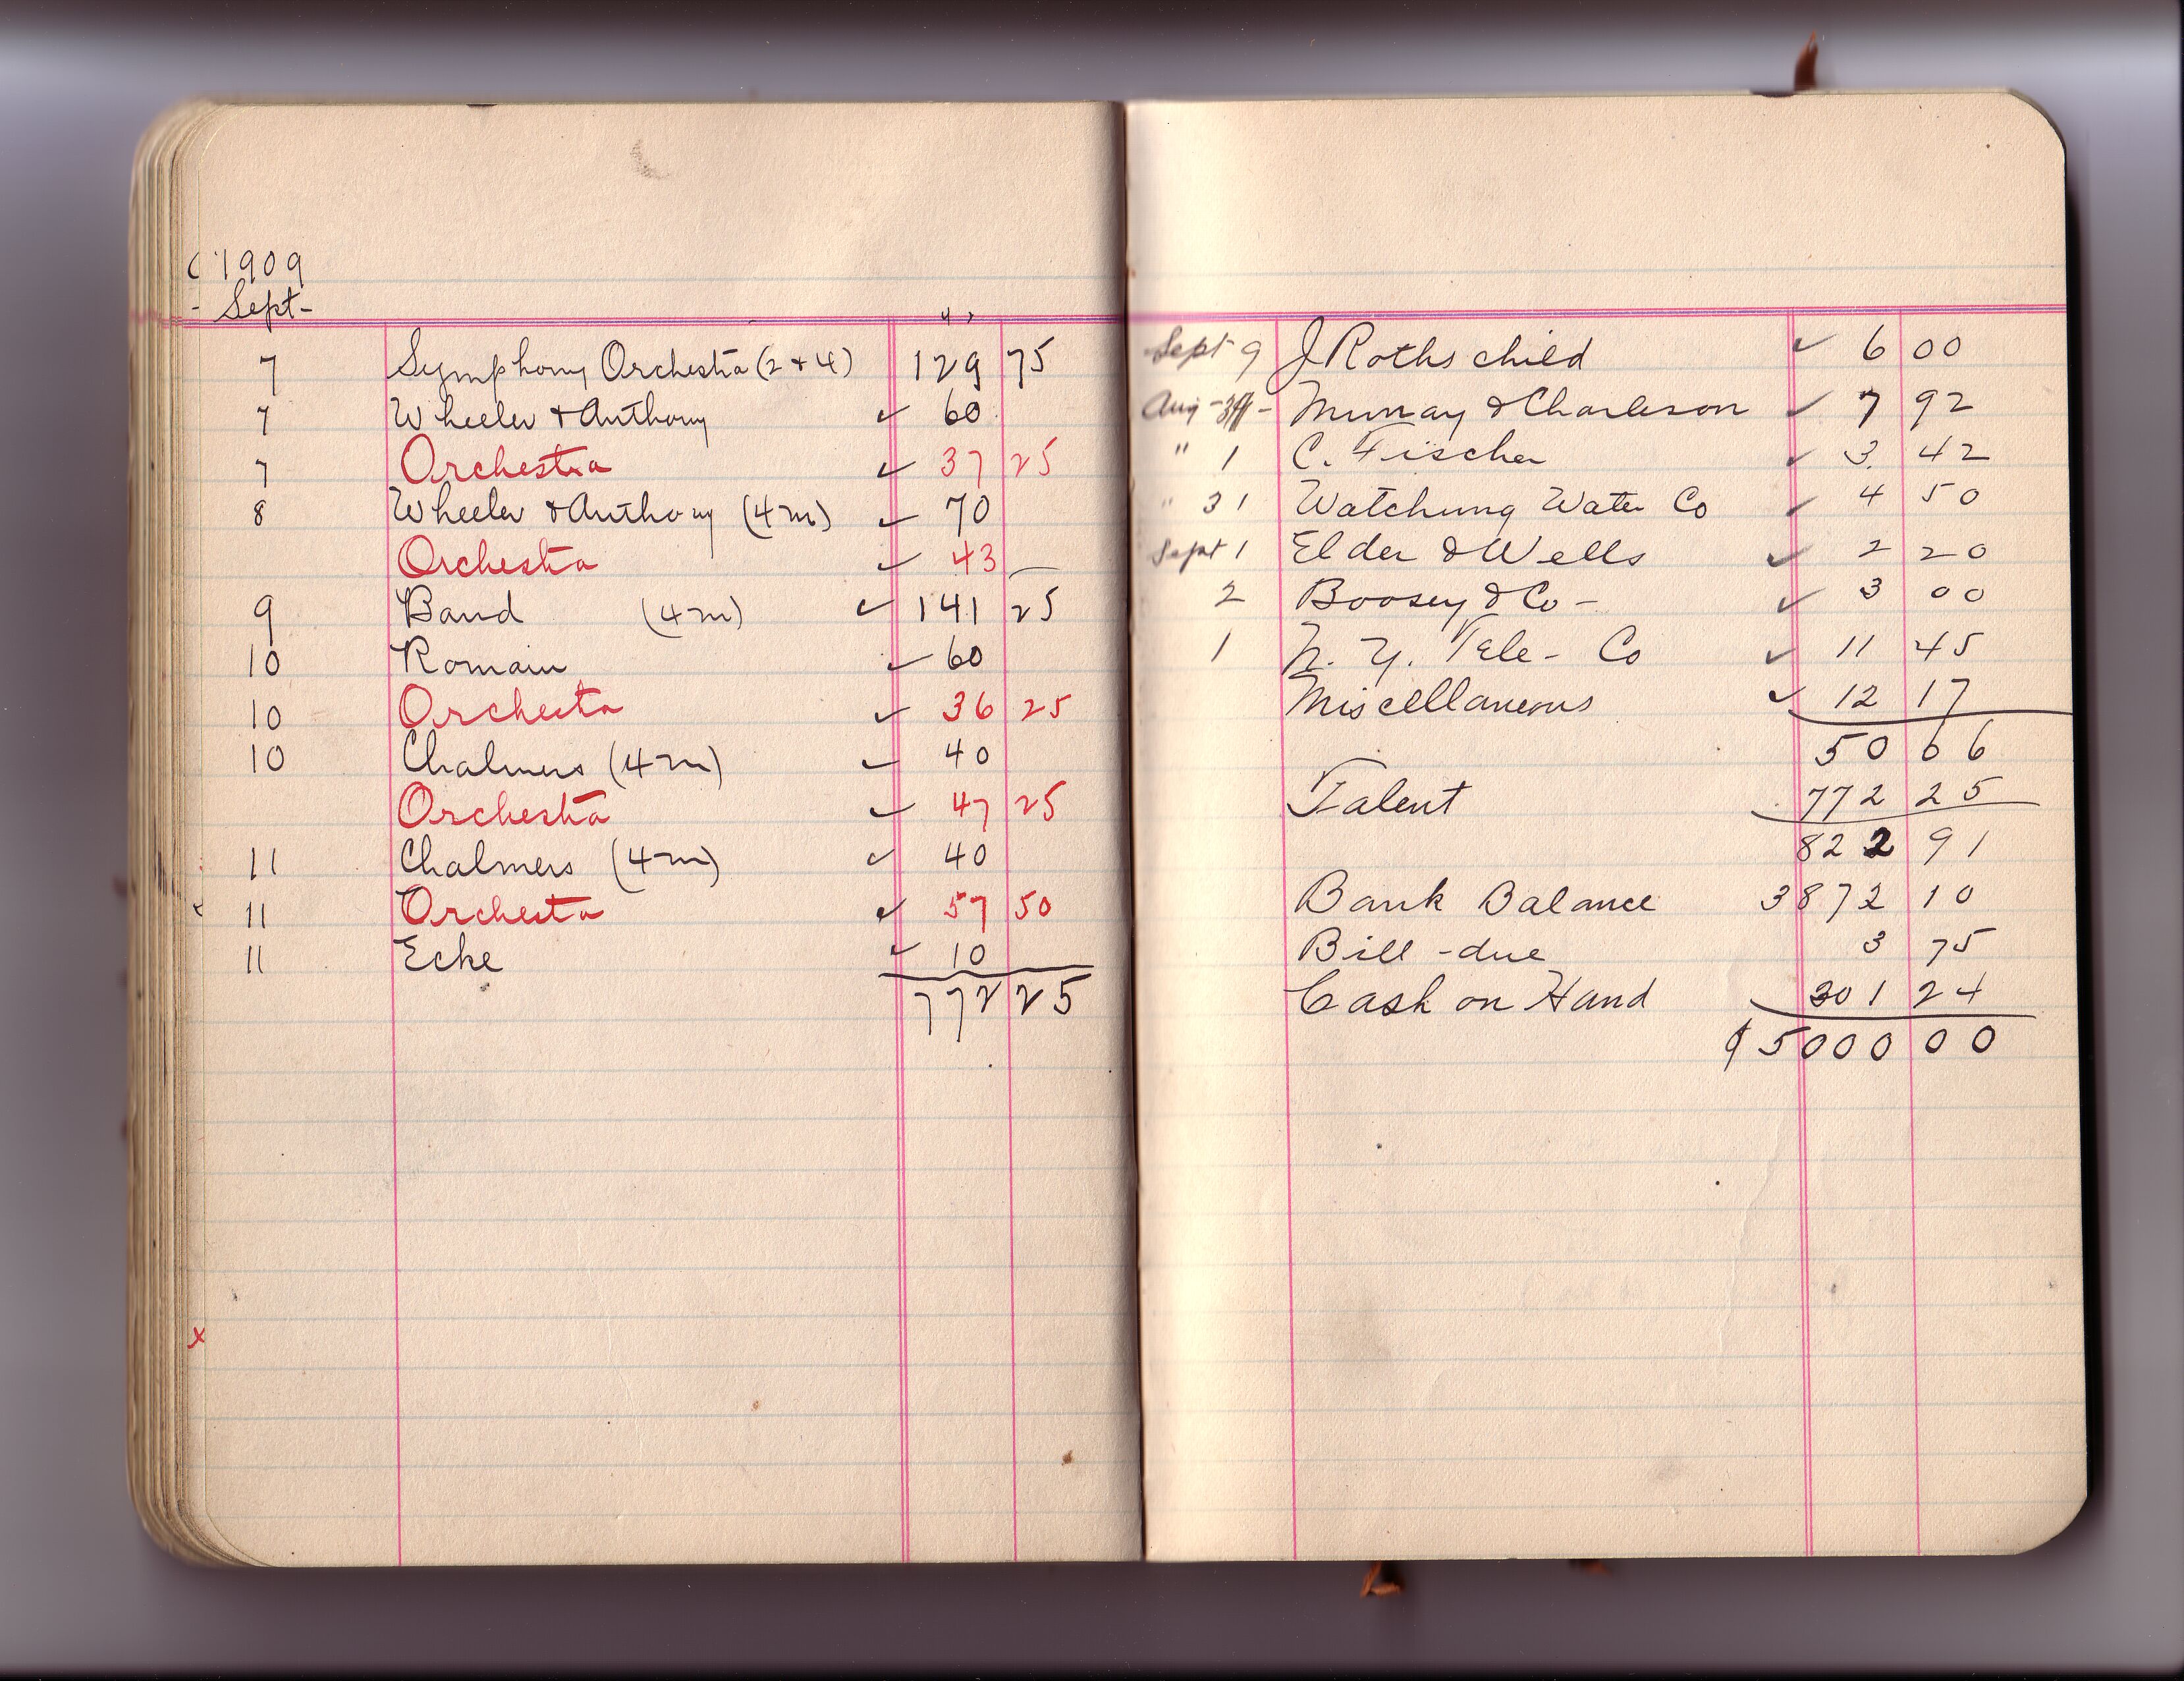 1909
- Sept -
7 Symphony Orchestra (2 + 4) 129 75
7 Wheeler & Anthony ✓ 60
7 Orchestra ✓ 37 25
8 Wheeler & Anthony (4m) ✓ 70
Orchestra ✓ 43 —
9 Band (4m) ✓ 141 25
10 Romain ✓ 60
10 Orchestra ✓ 36 25
10 Chalmers (4m) ✓ 40
Orchestra ✓ 47 25
11 Chalmers (4m) ✓ 40
11 Orchestra ✓ 57 50
11 Ecke ✓ 10
772 25
x
Sept 9 J Rothschild ✓ 6 00
Aug - Murray & Charleson ✓ 7 92
" 1 C. Fischer ✓ 3 42
" 31 Watchung Water Co ✓ 4 50
Sept 1 Elder & Wells ✓ 2 20
2 Boosey & Co - ✓ 3 00
1 N. Y. Tele - Co ✓ 11 45
Miscellaneous ✓ 12 17
50 66
Talent 772 25
822 91
Bank Balance 3872 10
Bill - due 3 75
Cash on Hand 301 24
$5000 00